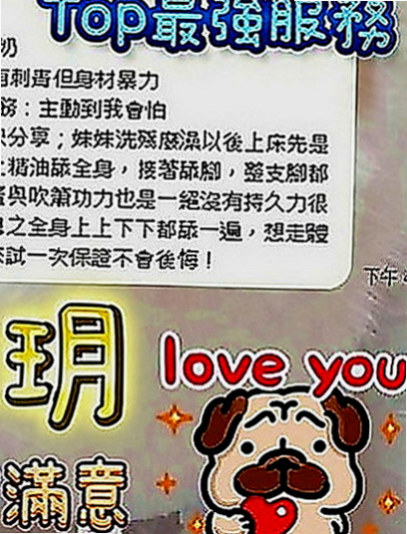 Top最強服務
奶
有刺青但身材暴力
務：主動到我會怕
分享；妹妹洗殘廢澡以後上床先是
上揩油舔全身，接著舔腳，整支腳都
與吹簫功力也是一絕沒有持久力很
之全身上上下下都舔一遍，想走體
試一次保證不會後悔！
下午
玥
love you
滿意